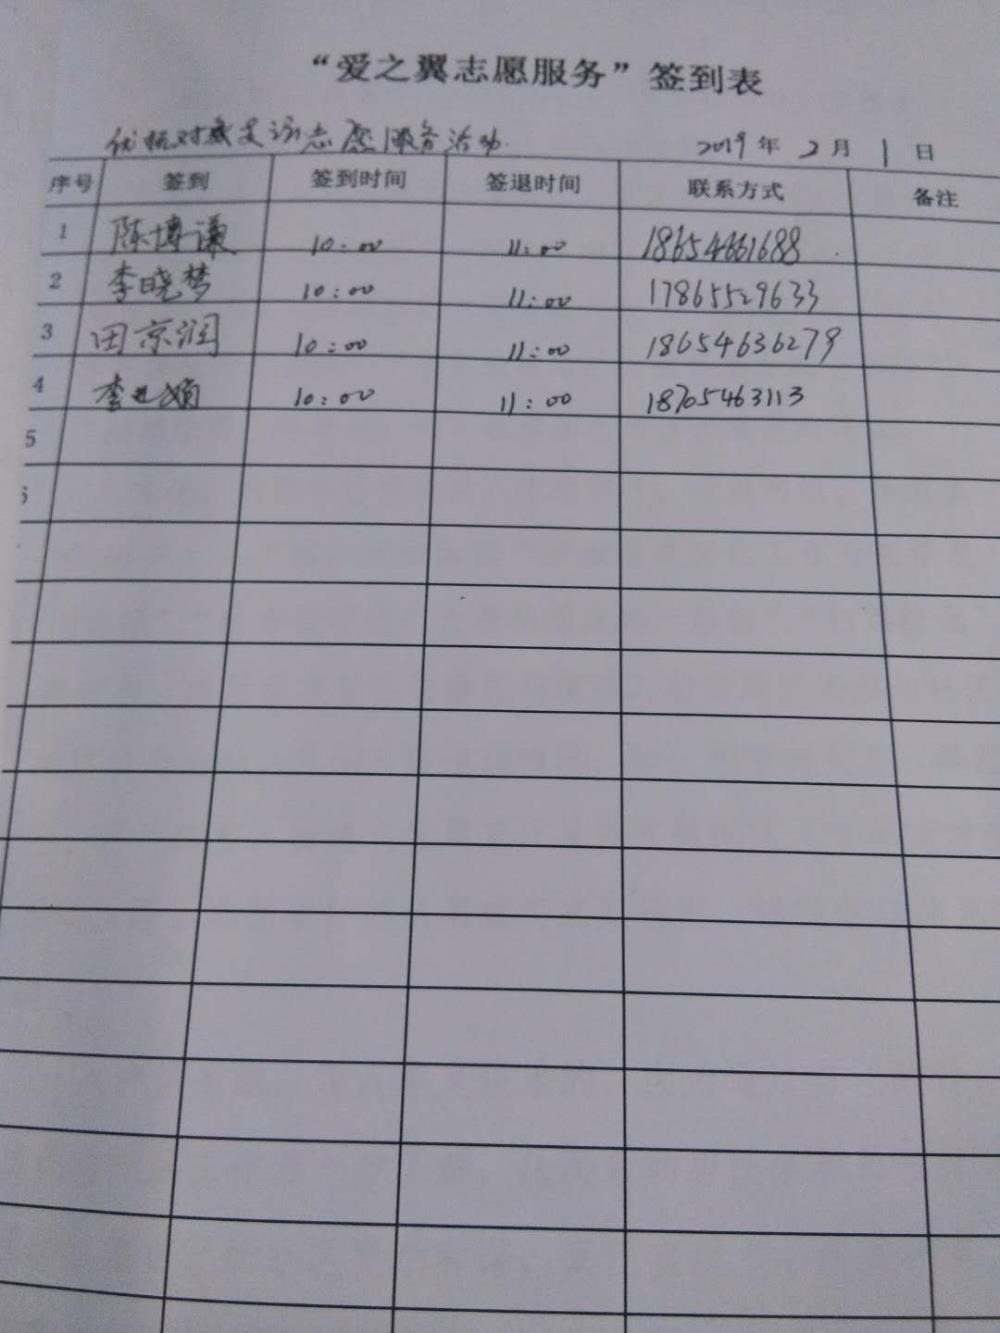 “爱之翼志愿服务”签到表
志愿服务活动 2019年 2月 1日
序号 签到 签到时间 签退时间 联系方式 备注
1 陈博谦 10:00 11:00 18654661688
2 李晓梦 10:00 11:00 17865529633
3 田京润 10:00 11:00 18654636279
4 李 娟 10:00 11:00 18705463113
5